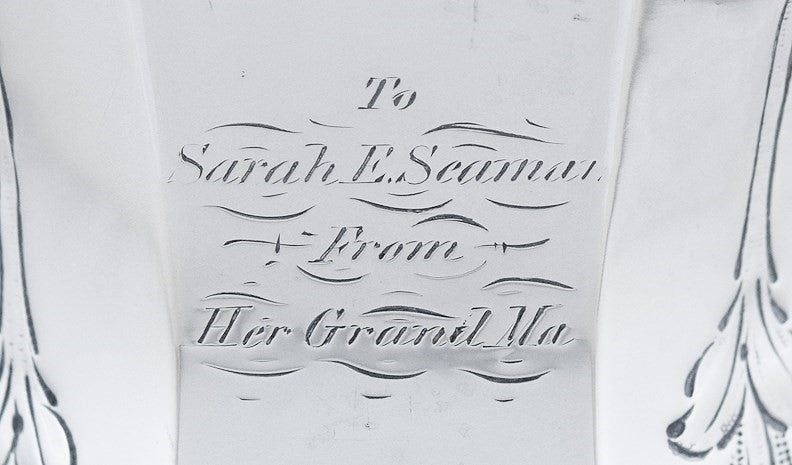 To
Sarah E. Seaman
From
Her Grand Ma